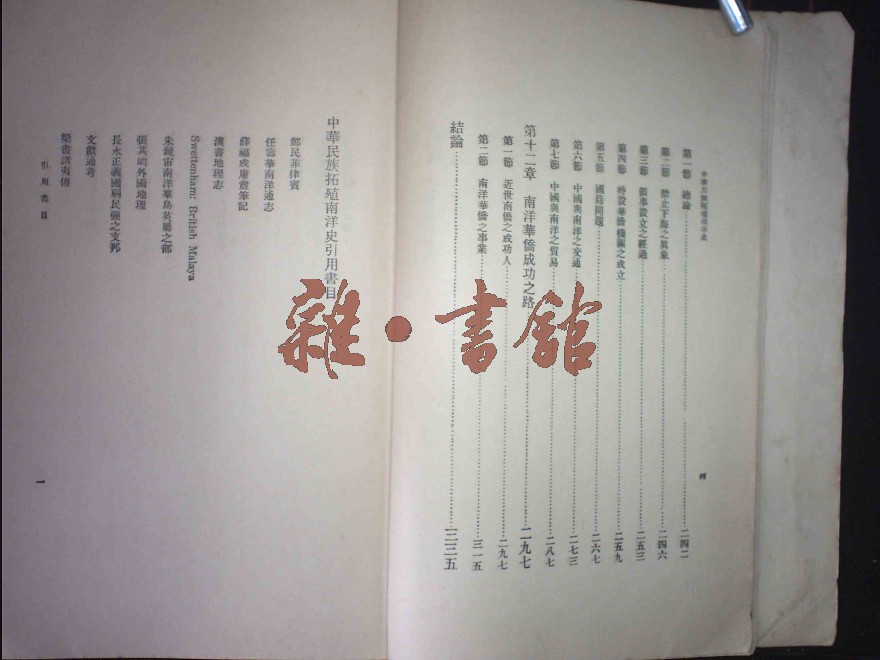 中華民族拓殖南洋史
第一節 總論 二四二
第二節 禁止下海之眞象 二四六
第三節 領事設立之經過 二五三
第四節 特設華僑機關之成立 二五九
第五節 國籍問題 二六七
第六節 中國與南洋之交通 二七三
第七節 中國與南洋之貿易 二八七
第十二章 南洋華僑成功之路 二九七
第一節 近世南僑之成功人 二九七
第二節 南洋華僑之事業 三一五
結論 三三五
四
中華民族拓殖南洋史引用書目
鄭民菲律賓
任壽華南洋通志
薛福成庸盦筆記
漢書地理志
Swettenham: British Malaya
朱鏡宙南洋羣島英屬之部
張其昀外國地理
長永正義國弱民強之支那
文獻通考
梁書諸夷傳
引用書目
一
雜·書館